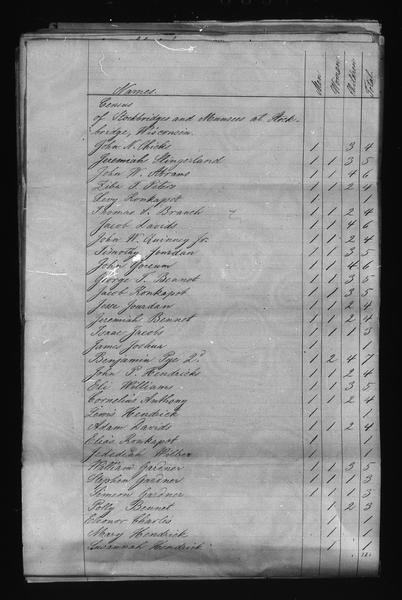 Names. Men Women Children Total
Census
of Stockbridges and Munsees at Stock-
bridge, Wisconsin.
John N. Chicks 1 3 4
Jeremiah Slingerland 1 1 3 5
John W. Abrams 1 1 4 6
Ziba T. Peters 1 1 2 4
Levy Konkapot 1 1
Thomas S. Branch 1 1 2 4
Jacob Davids 1 1 4 6
John W. Quinney Jr. 1 1 2 4
Timothy Jourdan 1 1 3 5
John Yoccum 1 1 4 6
George T. Bennet 1 1 3 5
Jacob Konkapot 1 1 3 5
Jesse Jourdan 1 1 2 4
Jeremiah Bennet 1 1 2 4
Isaac Jacobs 1 1 1 3
James Joshua 1 1
Benjamin Pye 2d 1 2 4 7
John P. Hendricks 1 1 2 4
Eli Williams 1 1 3 5
Cornelius Anthony 1 1 2 4
Lewis Hendrick 1 1
Adam Davids 1 1 2 4
Elias Konkapot 1 1
Jedediah Wilber 1 1
William Gardner 1 1 3 5
Stephen Gardner 1 1 1 3
Simeon Gardner 1 1 1 3
Polly Bennet 1 2 3
Eleonor Charles 1 1
Mary Hendrick 1 1
Susannah Hendrick 1 1